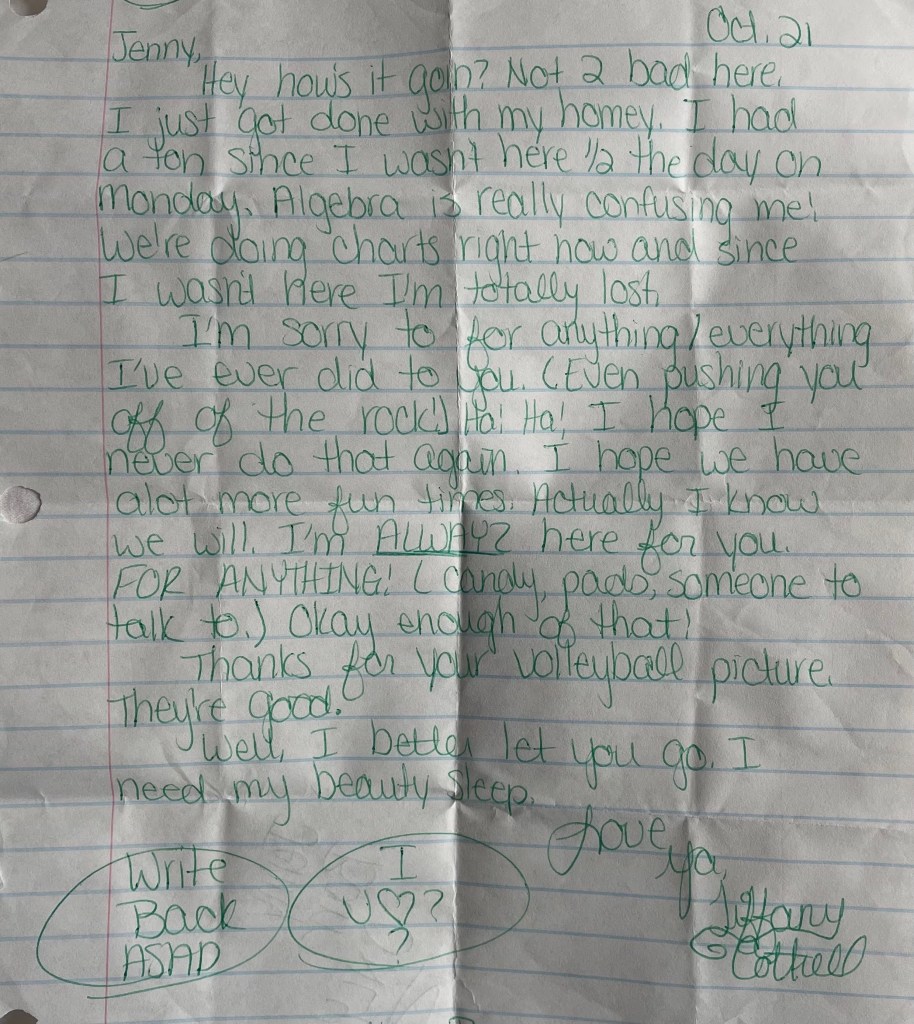 Oct. 21
Jenny,
Hey how's it goin? Not 2 bad here.
I just got done with my homey. I had
a ton since I wasn't here 1/2 the day on
Monday. Algebra is really confusing me!
We're doing charts right now and since
I wasn't here I'm totally lost.
I'm sorry to for anything/everything
I've ever did to you. (Even pushing you
off of the rock!) Ha! Ha! I hope I
never do that again. I hope we have
alot more fun times. Actually I know
we will. I'm ALWAYZ here for you.
FOR ANYTHING! (Candy, pads, someone to
talk to.) Okay enough of that!
Thanks for your volleyball picture.
They're good.
Well, I better let you go. I
need my beauty sleep.
Love
ya,
Tiffany
Cottrell
Write
Back
ASAP
I
U ♡ ?
?